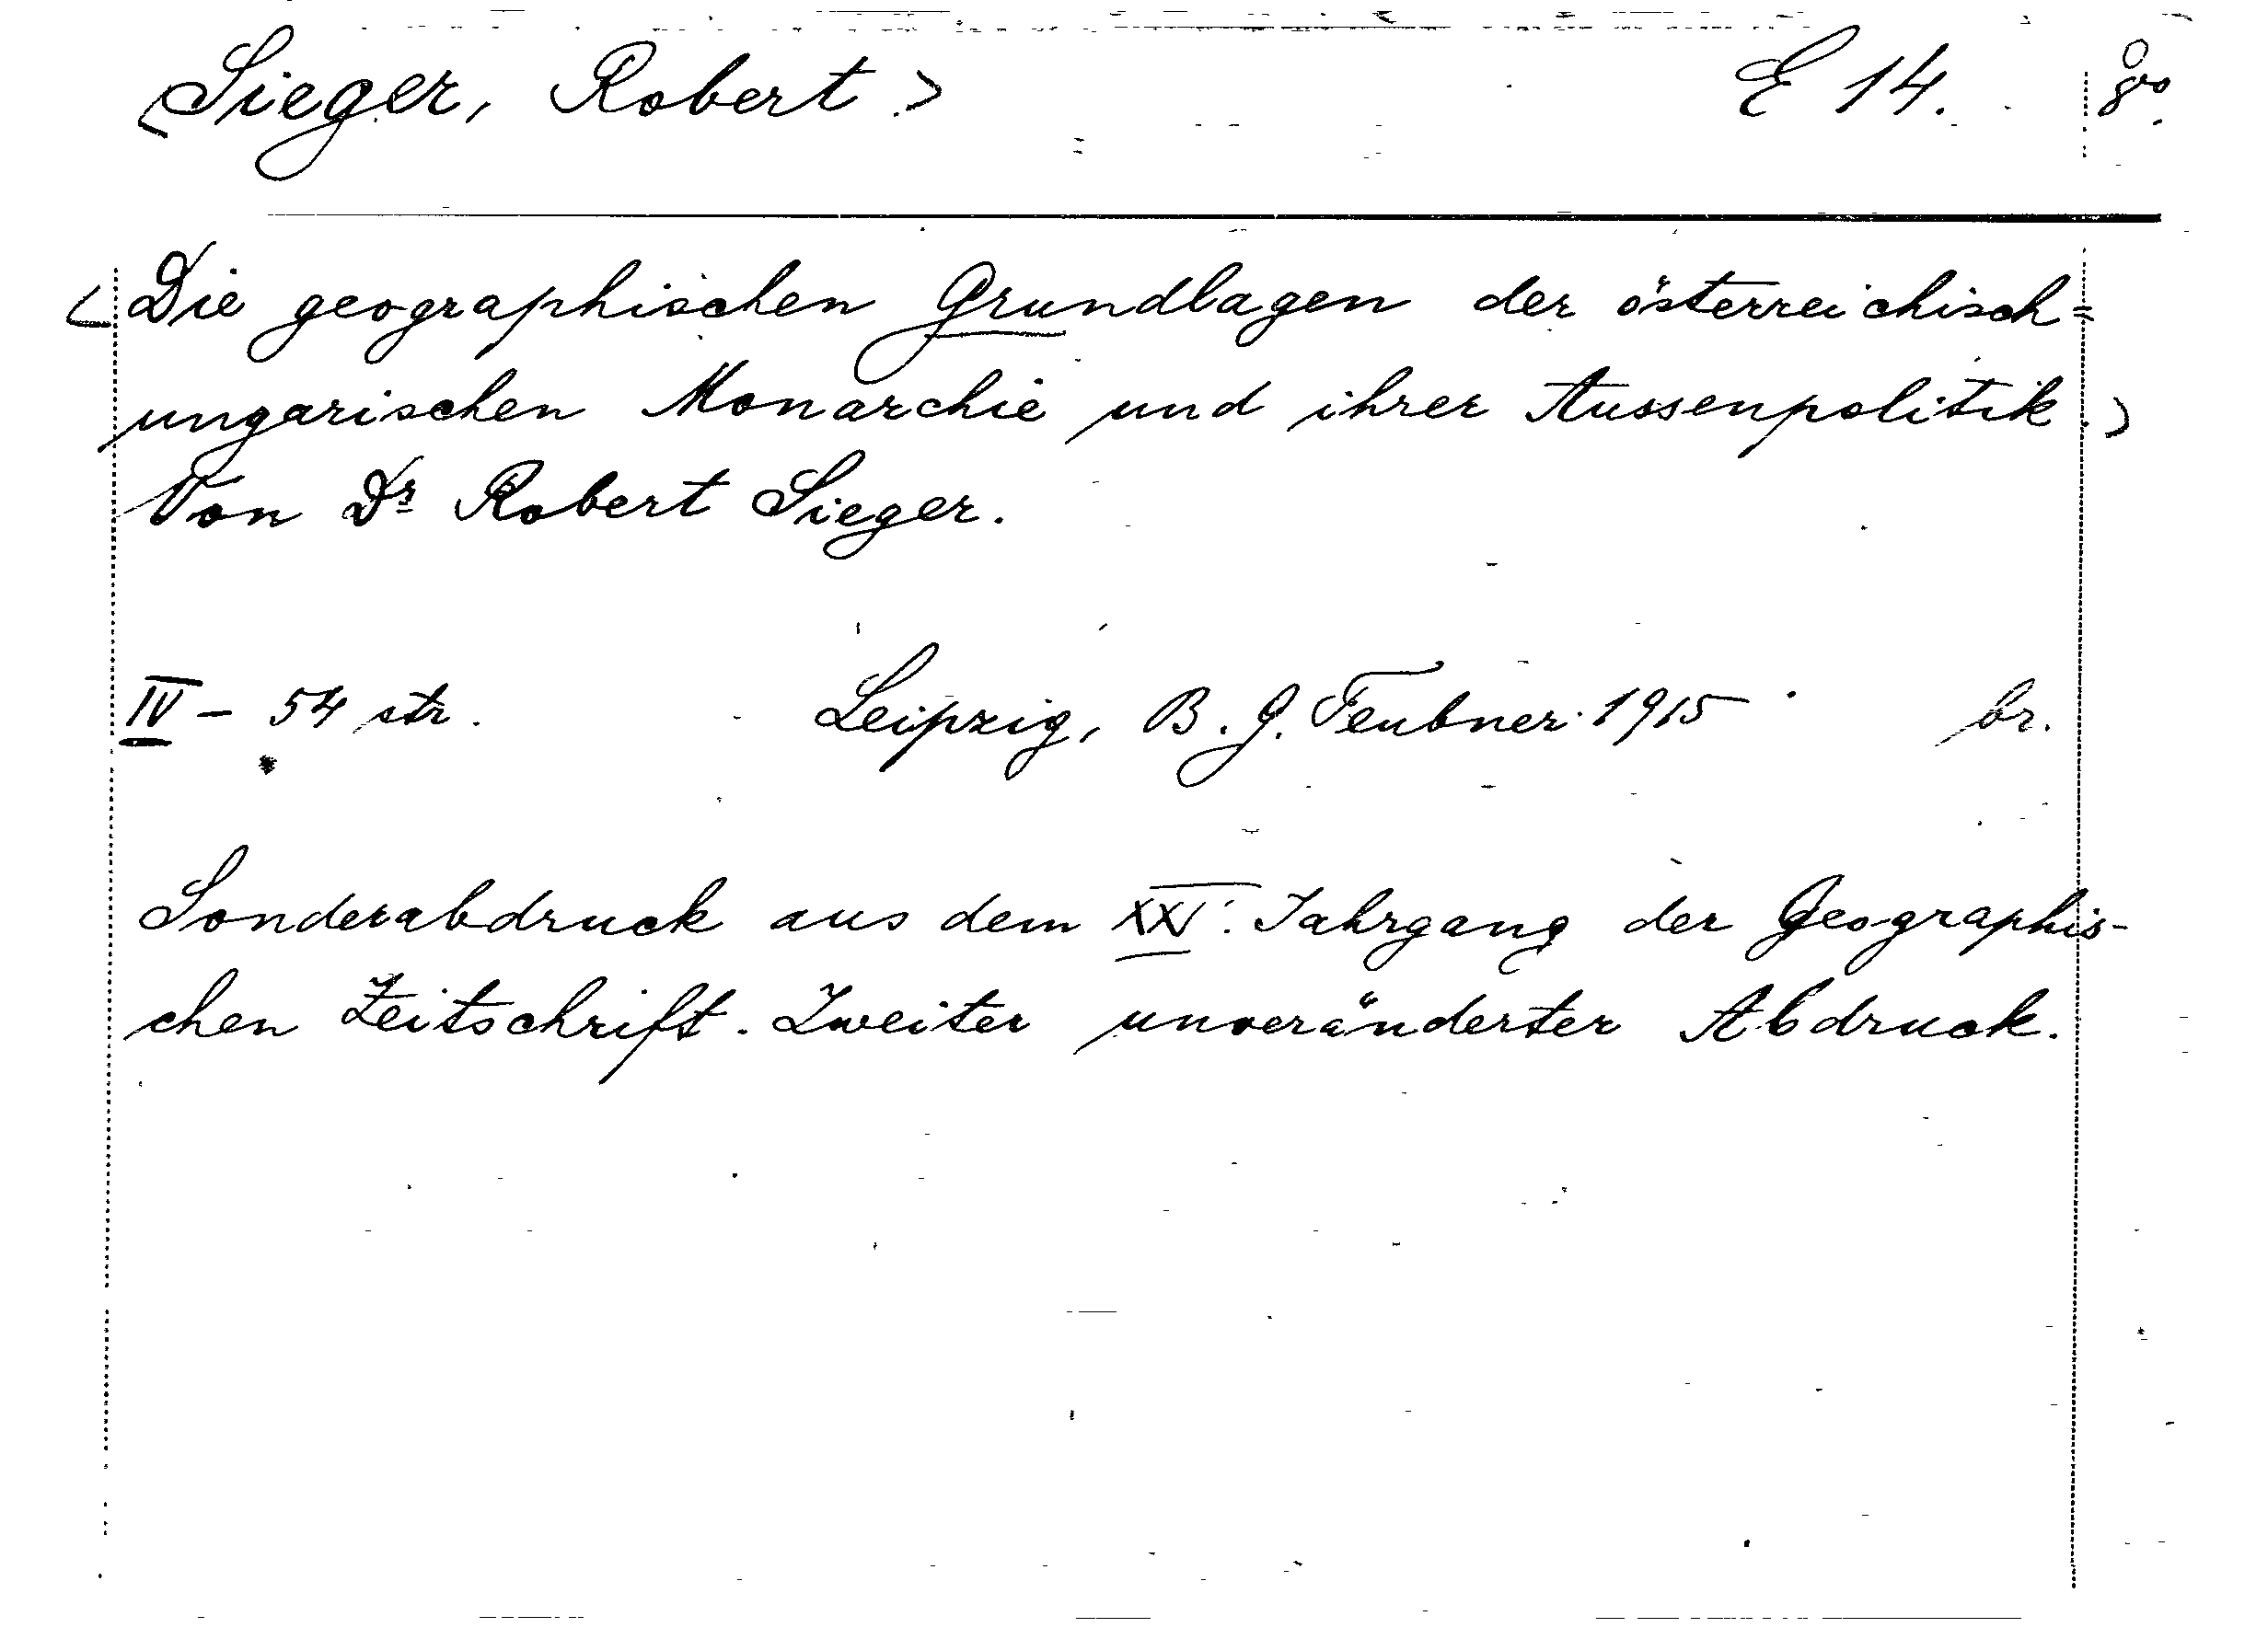 <Sieger, Robert.> E 14. 8º.
<Die geographischen Grundlagen der österreichisch=
ungarischen Monarchie und ihrer Aussenpolitik.>
Von Dr Robert Sieger.
IV - 54 str. Leipzig, B. G. Teubner 1915 br.
Sonderabdruck aus dem XXI. Jahrgang der Geographis-
chen Zeitschrift. Zweiter unveränderter Abdruck.